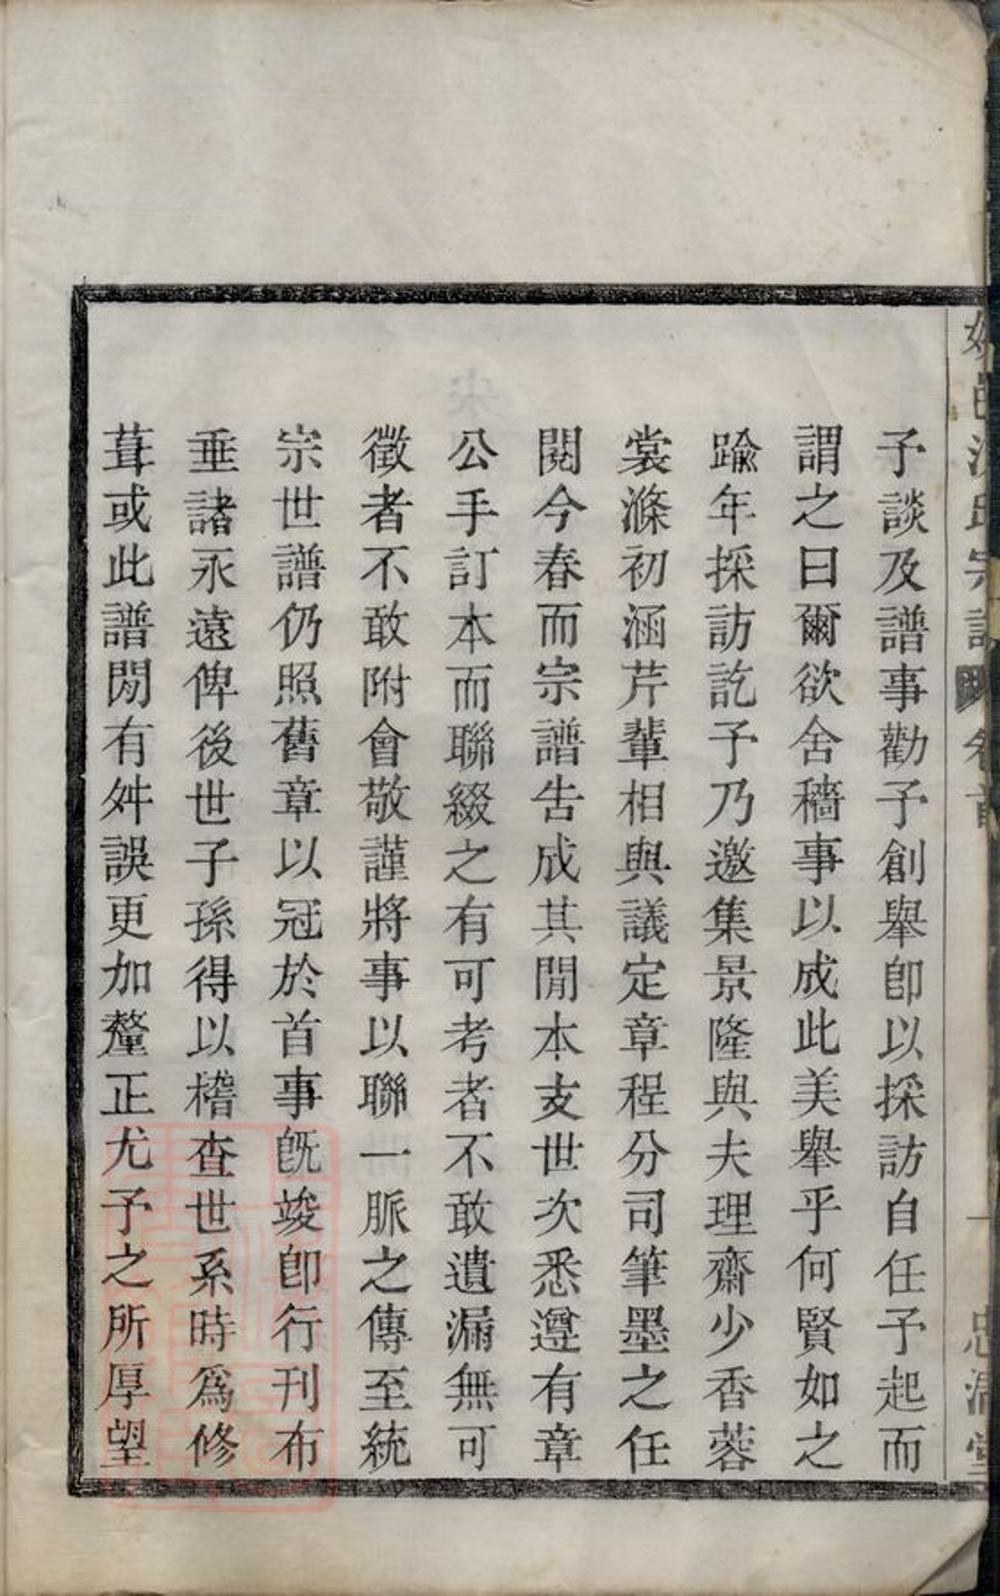 予談及譜事勸予創舉卽以採訪自任予起而
謂之曰爾欲舍穡事以成此美舉乎何賢如之
踰年採訪訖予乃邀集景隆與夫理齋少香蓉
裳滌初涵芹輩相與議定章程分司筆墨之任
閱今春而宗譜告成其閒本支世次悉遵有章
公手訂本而聯綴之有可考者不敢遺漏無可
徵者不敢附會敬謹將事以聯一脈之傳至統
宗世譜仍照舊章以冠於首事旣竣卽行刊布
垂諸永遠俾後世子孫得以稽查世系時爲修
葺或此譜閒有舛誤更加釐正尤予之所厚望